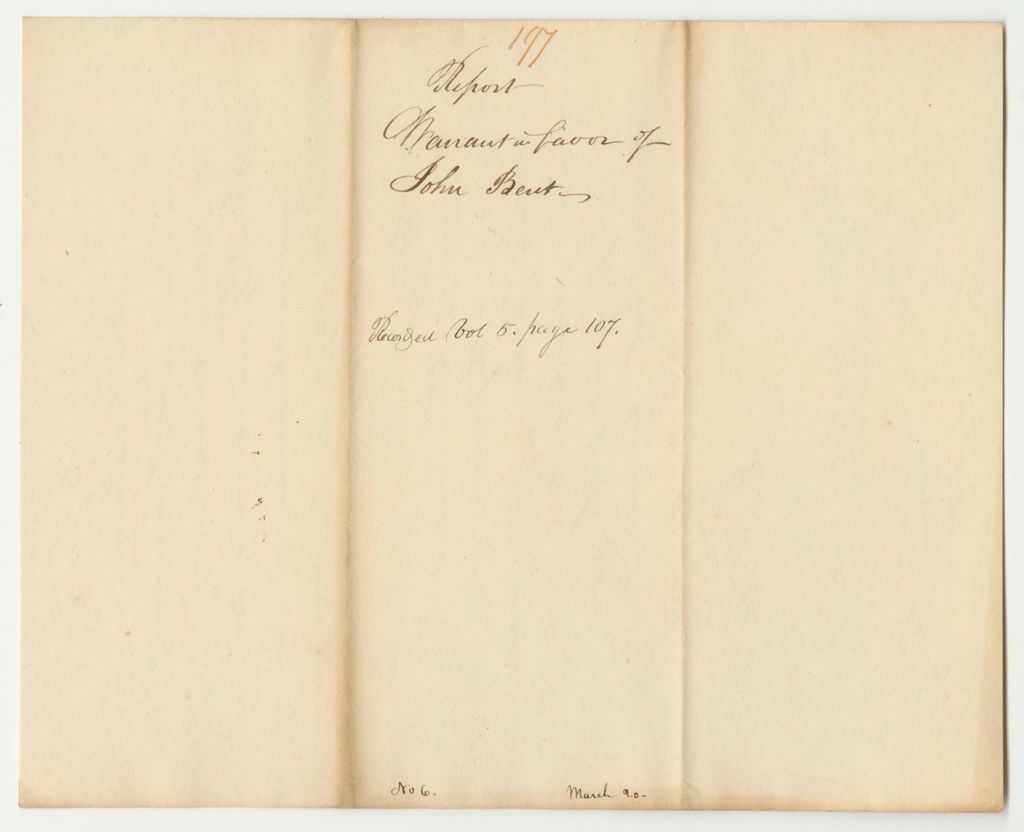 197
Report
Warrant in favor of
John Bent
Recorded Vol 5. page 107.
No 6.
March 20-